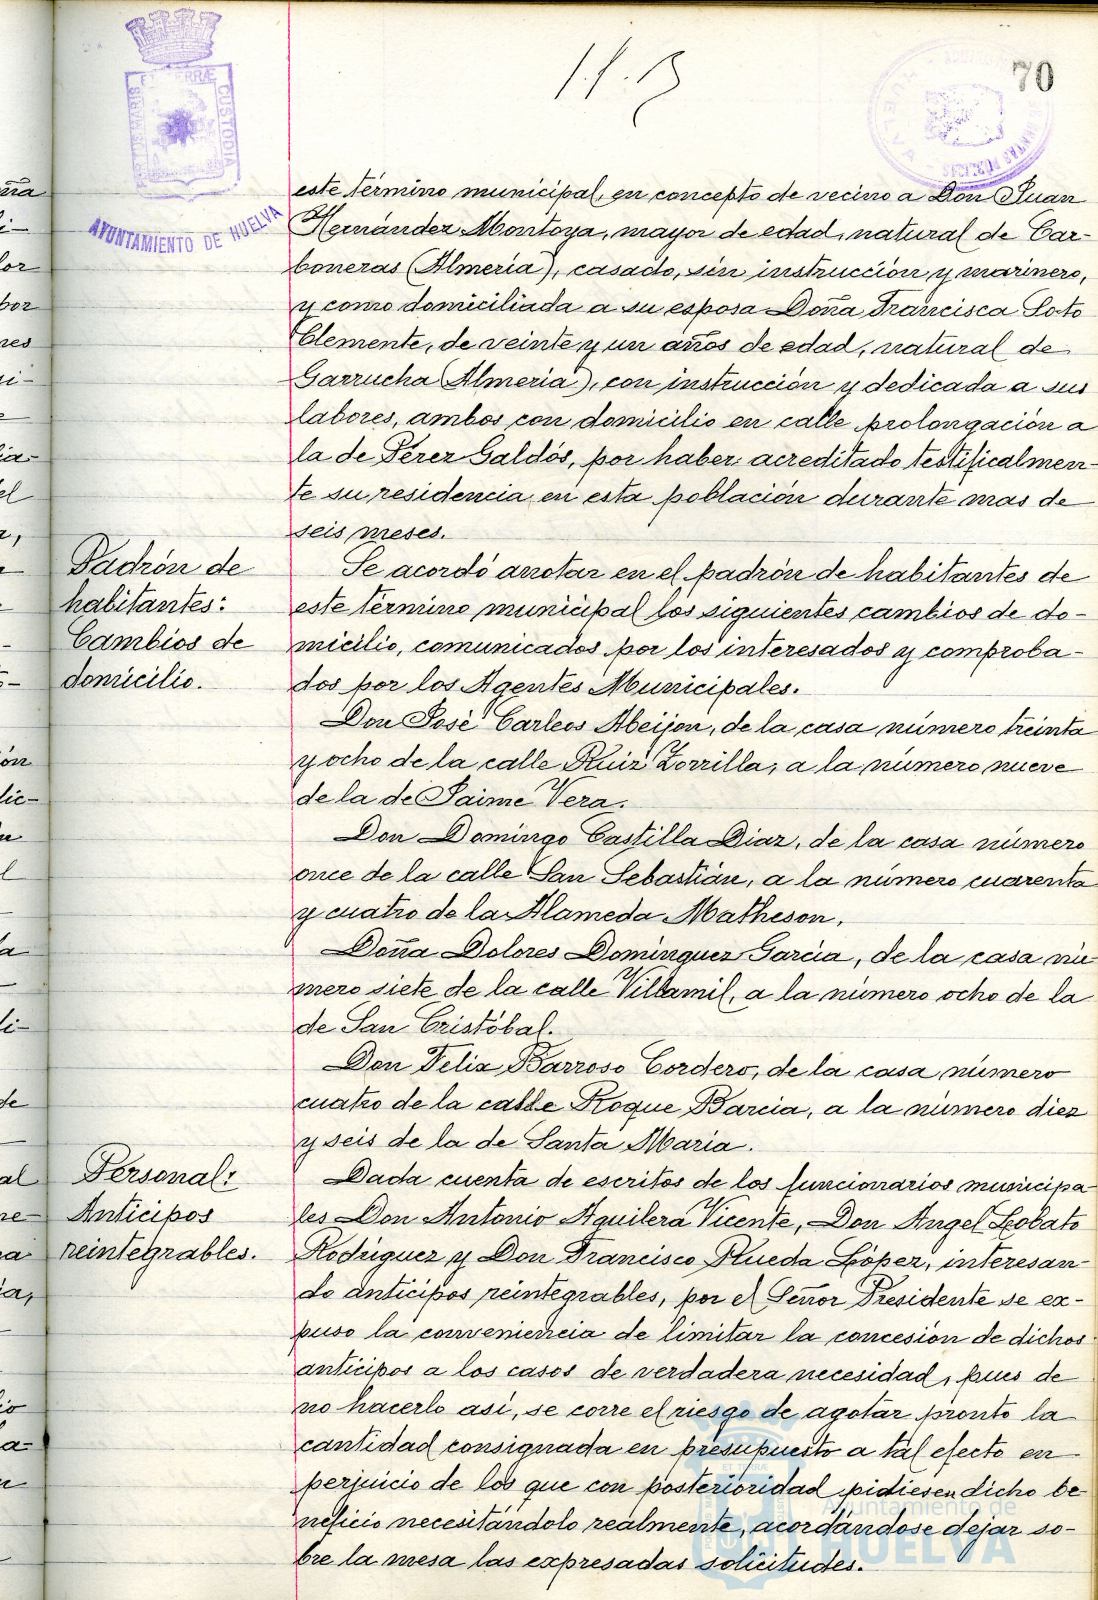 70
AYUNTAMIENTO DE HUELVA
este término municipal, en concepto de vecino a Don Juan
Hernández Montoya, mayor de edad, natural de Car-
boneras (Almeria), casado, sin instrucción y marinero,
y como domiciliada a su esposa Doña Francisca Soto
Clemente, de veinte y un años de edad, natural de
Garrucha (Almeria), con instrucción y dedicada a sus
labores, ambos con domicilio en calle prolongación a
la de Pérez Galdós, por haber acreditado testificalmen-
te su residencia en esta población durante mas de
seis meses.
Padrón de
habitantes:
Cambios de
domicilio.
Se acordó anotar en el padrón de habitantes de
este término municipal los siguientes cambios de do-
micilio, comunicados por los interesados y comproba-
dos por los Agentes Municipales.
Don José Carleos Abeijon, de la casa número treinta
y ocho de la calle Ruiz Zorrilla, a la número nueve
de la de Jaime Vera.
Don Domingo Castilla Diaz, de la casa número
once de la calle San Sebastián, a la número cuarenta
y cuatro de la Alameda Matheson.
Doña Dolores Dominguez Garcia, de la casa nú-
mero siete de la calle Villamil, a la número ocho de la
de San Cristóbal.
Don Felix Barroso Cordero, de la casa número
cuatro de la calle Roque Barcia, a la número diez
y seis de la de Santa Maria.
Personal:
Anticipos
reintegrables.
Dada cuenta de escritos de los funcionarios municipa-
les Don Antonio Aguilera Vicente, Don Angel Lobato
Rodriguez y Don Francisco Rueda López, interesan-
do anticipos reintegrables, por el Señor Presidente se ex-
puso la conveniencia de limitar la concesión de dichos
anticipos a los casos de verdadera necesidad, pues de
no hacerlo así, se corre el riesgo de agotar pronto la
cantidad consignada en presupuesto a tal efecto en
perjuicio de los que con posterioridad pidiesen dicho be-
neficio necesitándolo realmente, acordándose dejar so-
bre la mesa las expresadas solicitudes.
Ayuntamiento de
HUELVA